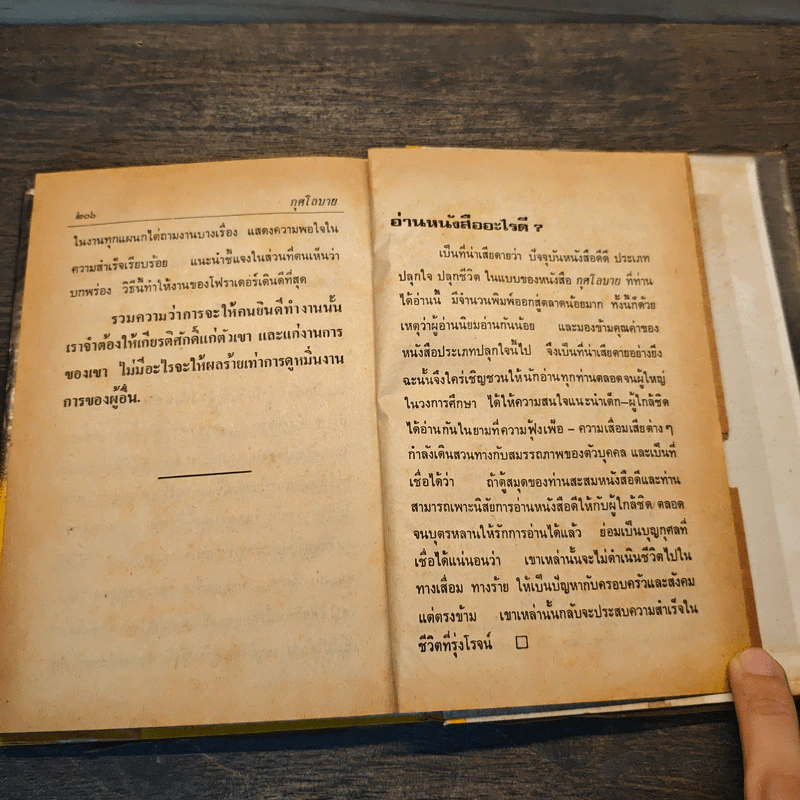 ๒๐๖ กุศโลบาย
ในงานทุกแผนกไต่ถามงานบางเรื่อง แสดงความพอใจใน
ความสำเร็จเรียบร้อย แนะนำชี้แจงในส่วนที่ตนเห็นว่า
บกพร่อง วิธีนี้ทำให้งานของโฟราเตอร์เดินดีที่สุด
รวมความว่าการจะให้คนยินดีทำงานนั้น
เราจำต้องให้เกียรติศักดิ์แก่ตัวเขา และแก่งานการ
ของเขา ไม่มีอะไรจะให้ผลร้ายเท่าการดูหมิ่นงาน
การของผู้อื่น.
อ่านหนังสืออะไรดี ?
เป็นที่น่าเสียดายว่า ปัจจุบันหนังสือดีดี ประเภท
ปลุกใจ ปลุกชีวิต ในแบบของหนังสือ กุศโลบาย ที่ท่าน
ได้อ่านนี้ มีจำนวนพิมพ์ออกสู่ตลาดน้อยมาก ทั้งนี้ก็ด้วย
เหตุว่าผู้อ่านนิยมอ่านกันน้อย และมองข้ามคุณค่าของ
หนังสือประเภทปลุกใจนี้ไป จึงเป็นที่น่าเสียดายอย่างยิ่ง
ฉะนั้นจึงใคร่เชิญชวนให้นักอ่านทุกท่านตลอดจนผู้ใหญ่
ในวงการศึกษา ได้ให้ความสนใจแนะนำเด็ก–ผู้ใกล้ชิด
ได้อ่านกันในยามที่ความฟุ้งเฟ้อ – ความเสื่อมเสียต่างๆ
กำลังเดินสวนทางกับสมรรถภาพของตัวบุคคล และเป็นที่
เชื่อได้ว่า ถ้าตู้สมุดของท่านสะสมหนังสือดีและท่าน
สามารถเพาะนิสัยการอ่านหนังสือดีให้กับผู้ใกล้ชิด/ตลอด
จนบุตรหลานให้รักการอ่านได้แล้ว ย่อมเป็นบุญกุศลที่
เชื่อได้แน่นอนว่า เขาเหล่านั้นจะไม่ดำเนินชีวิตไปใน
ทางเสื่อม ทางร้าย ให้เป็นปัญหากับครอบครัวและสังคม
แต่ตรงข้าม เขาเหล่านั้นกลับจะประสบความสำเร็จใน
ชีวิตที่รุ่งโรจน์ □